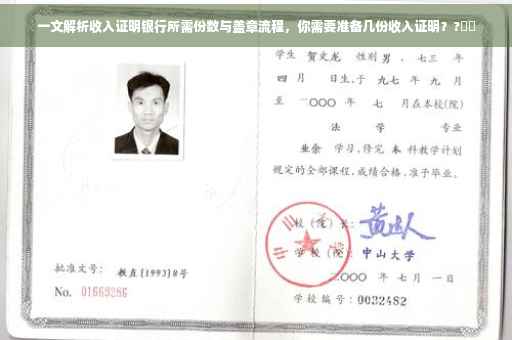 一文解析收入证明银行所需份数与盖章流程，你需要准备几份收入证明？?
学生 贺文龙 性别 男，七三 年
四 月 日生，于 九七 年 九 月
至 二〇〇〇 年 七 月在本校(院)
法 学 专业
业余 学习，修完 本 科教学计划
规定的全部课程，成绩合格，准予毕业。
校（院）长：
学 校（院）：中山大学
二〇〇〇 年 七 月 一 日
学校编号：0032482
批准文号：教直[1993]8号
No. 01669286